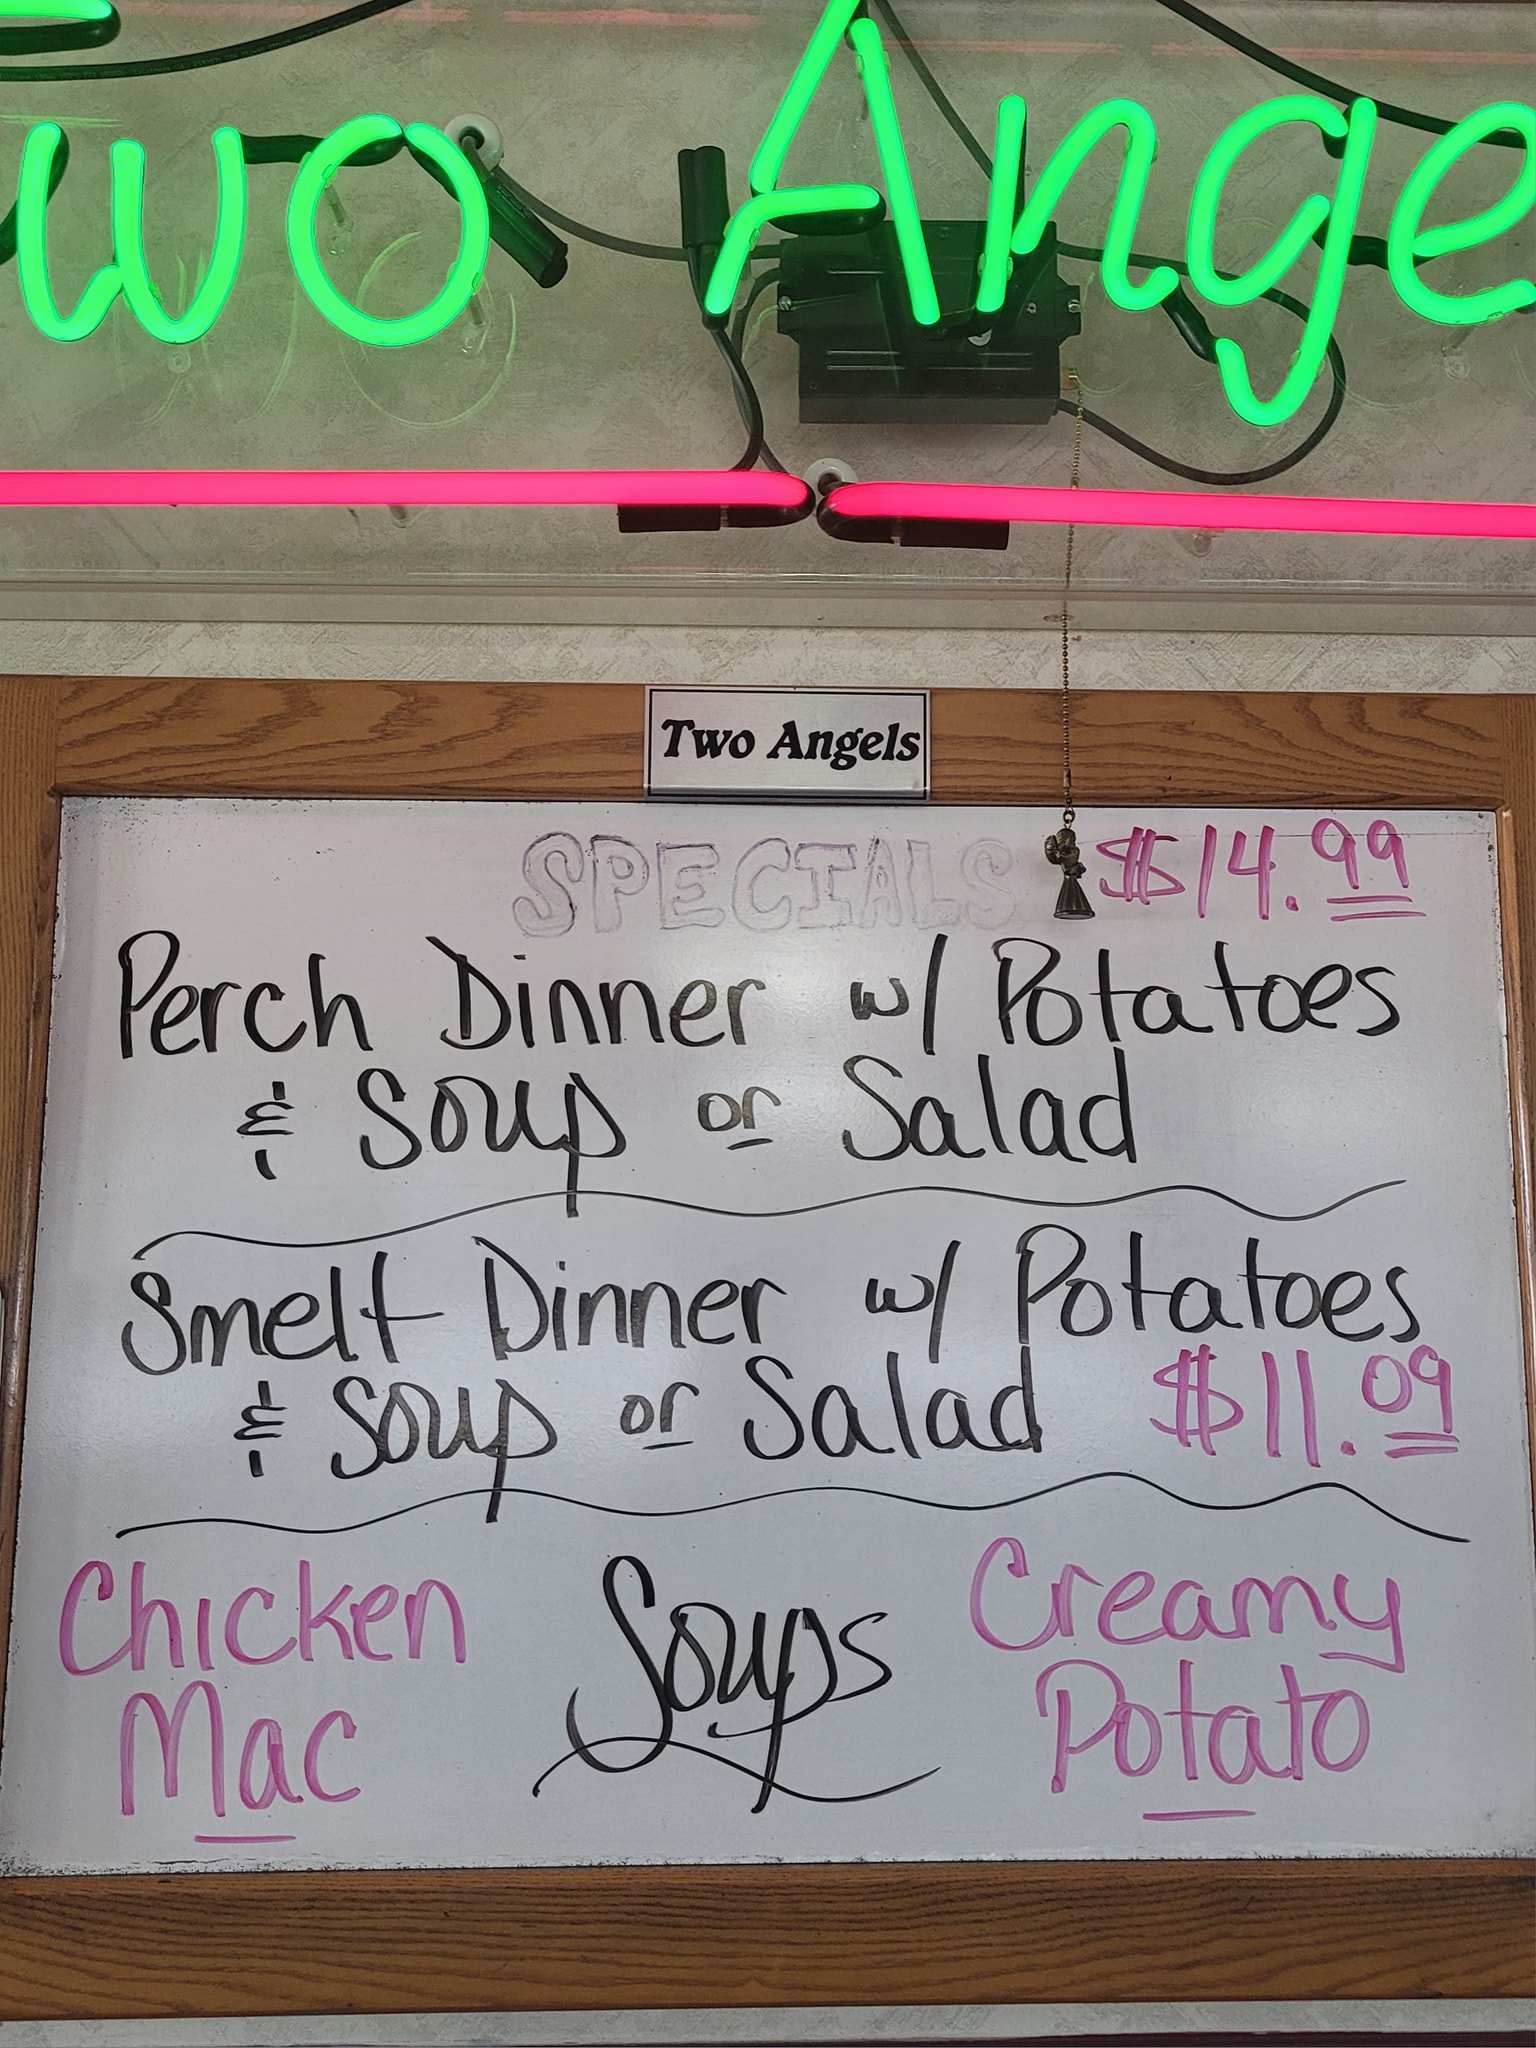 Two Ange
Two Angels
SPECIALS $14.99
Perch Dinner w/ Potatoes
& Soup or Salad
Smelt Dinner w/ Potatoes
& Soup or Salad $11.09
Chicken
Mac
Soups
Creamy
Potato